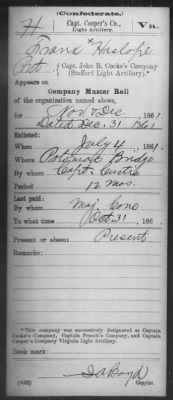 (Confederate.)
H Capt. Cooper's Co., Va.
Light Artillery.
Frank Haslope
Pvt, Capt. John R. Cooke's Company
(Stafford Light Artillery).*
Appears on
Company Muster Roll
of the organization named above,
for Nov & Dec, 1861
Dated Dec. 31 1861
Enlisted:
When July 4, 1861.
Where Potomac Bridge
By whom Capt.
Period 12 mos.
Last paid:
By whom Maj. Cone
To what time Oct. 31, 186
Present or absent Present
Remarks:
*This company was successively designated as Captain
Cooke's Company, Captain French's Company, and Captain
Cooper's Company Virginia Light Artillery.
Book mark:
(642) Boyd
Copyist.